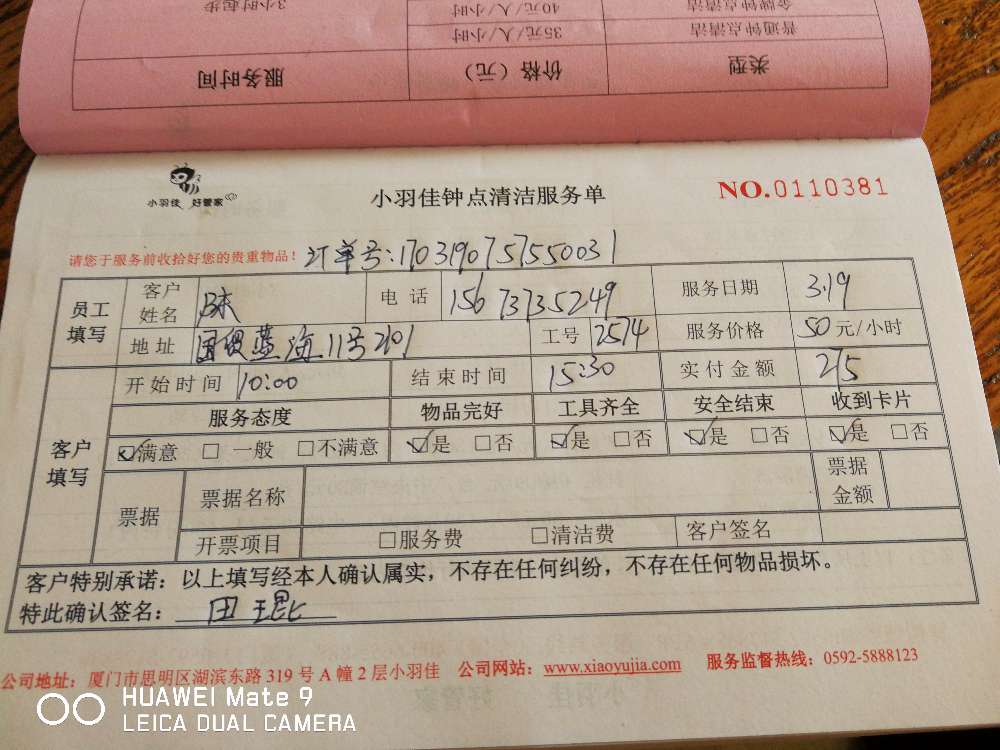 3小时起步 40元/人/小时 金牌钟点清洁
35元/人/小时 普通钟点清洁
服务时间 价格（元） 类型
小羽佳 好管家
小羽佳钟点清洁服务单
NO.0110381
请您于服务前收拾好您的贵重物品！ 订单号:1703190757550031
员工填写 客户姓名 电话 15673735249 服务日期 3.19
地址 国贸蓝海11号2101 工号 2574 服务价格 50元/小时
客户填写 开始时间 10:00 结束时间 15:30 实付金额 275
服务态度 物品完好 工具齐全 安全结束 收到卡片
☑满意 □一般 □不满意 ☑是 □否 ☑是 □否 ☑是 □否 ☑是 □否
票据 票据名称 票据金额
开票项目 □服务费 □清洁费 客户签名
客户特别承诺：以上填写经本人确认属实，不存在任何纠纷，不存在任何物品损坏。
特此确认签名：田
公司地址：厦门市思明区湖滨东路319号A幢2层小羽佳 公司网站：www.xiaoyujia.com 服务监督热线：0592-5888123
HUAWEI Mate 9
LEICA DUAL CAMERA